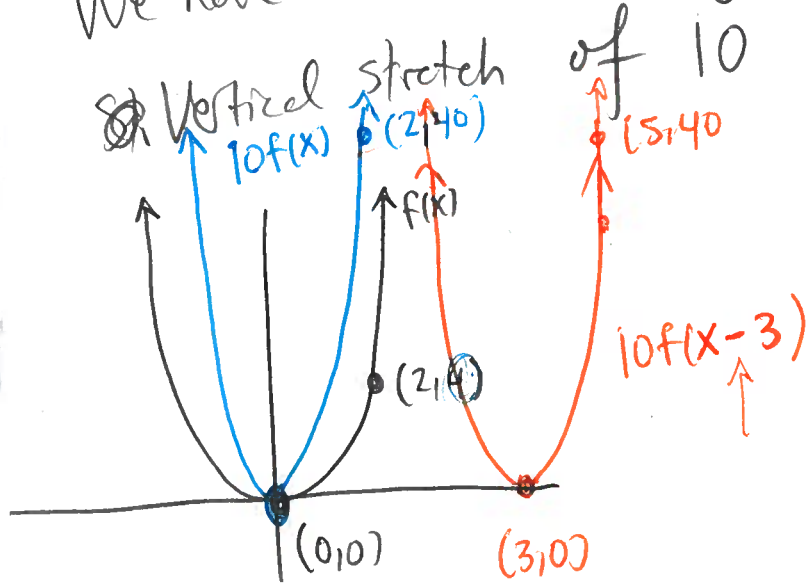 We have
Vertical stretch of 10
10f(x) (2,40) (5,40
f(x)
10f(x-3)
(2,4)
(0,0) (3,0)